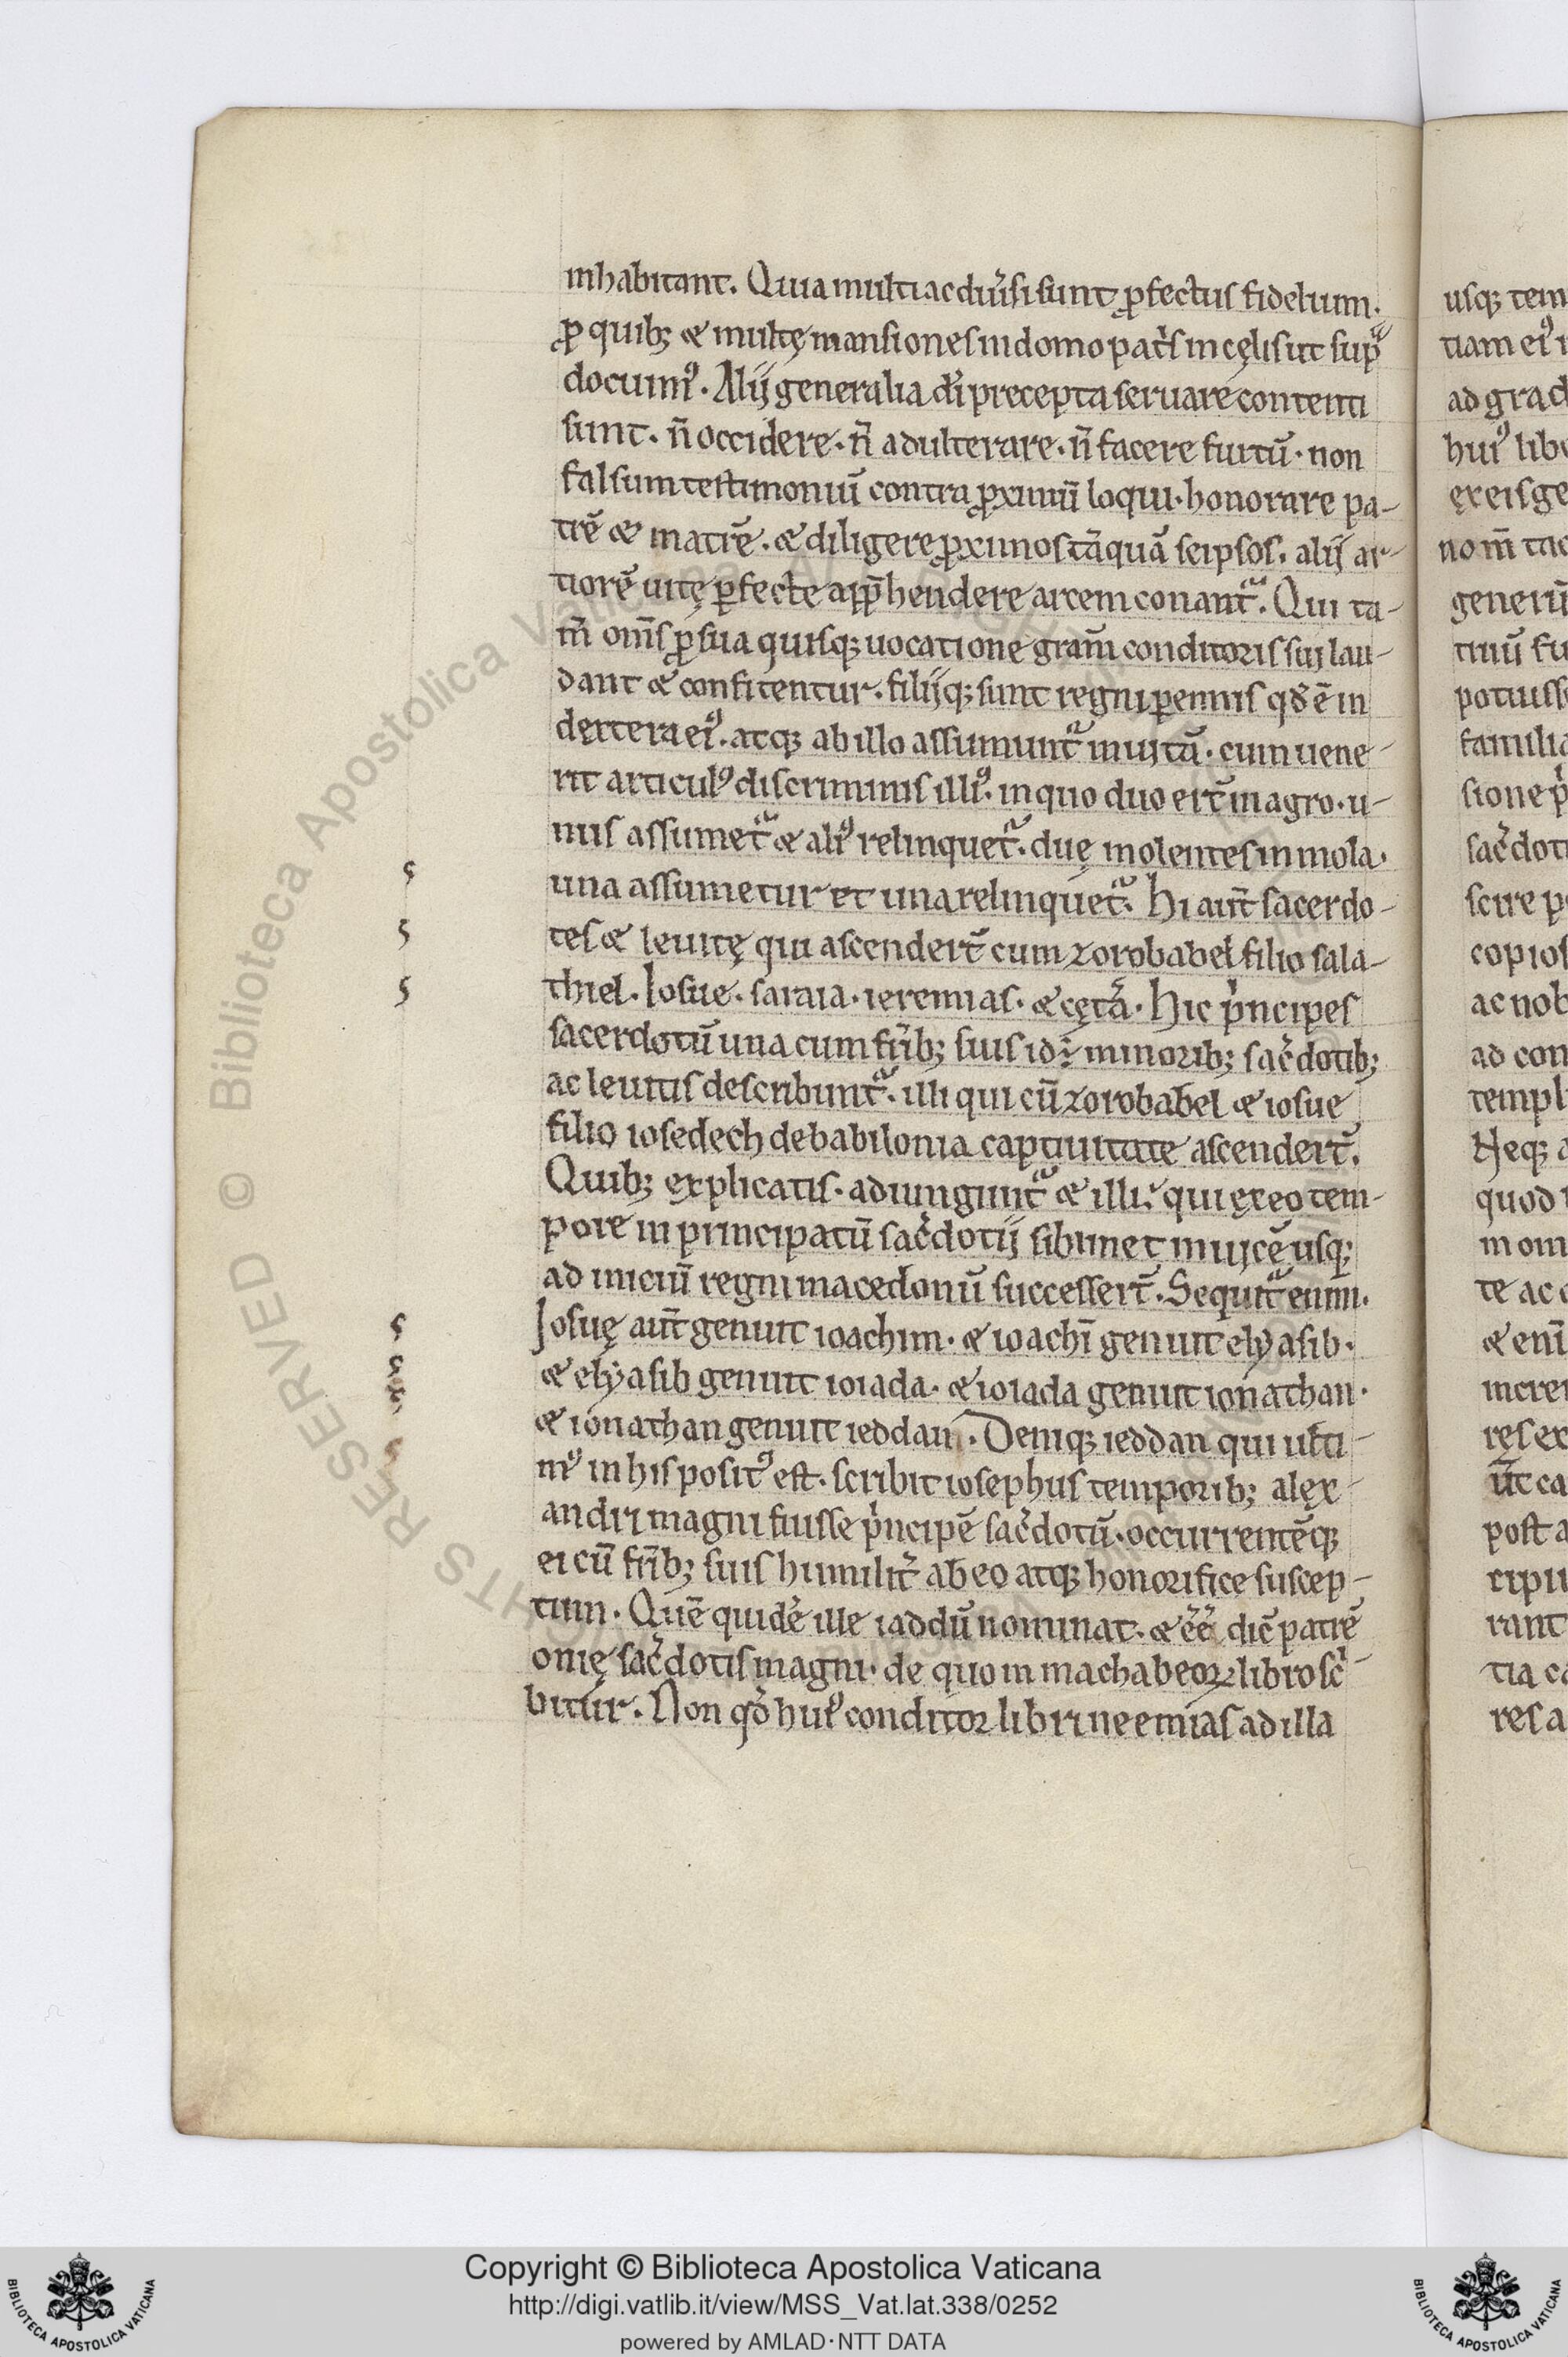 inhabitant. Quia multi ac diu̾si sunt ꝓfectus fidelium.
ꝓ quib; & multę mansiones in domo pat̾s in cęlis ut sup̃
docuimꝰ. Alij generalia dĩ precepta seruare contenti
sunt. ñ occidere. ñ adulterare. ñ facere furtũ. non
falsum testimoniũ contra ꝓximũ loqui. honorare pa-
trẽ & matrẽ. & diligere ꝓximos tãquã seipsos. alij ar-
tiorẽ uitę ꝑfectę app̃hendere arcem conant̃. Qui ta-
m̃ om̃s ꝓ sua quisq; uocatione gram̃ conditoris sui lau-
dant & confitentur. filijq; sunt regni ꝑennis qđ ẽ in
dextera eiꝰ. atq; ab illo assumunt̃ in uitã. cum uene-
rit articulꝰ discriminis illiꝰ. in quo duo ert̃ in agro. u-
nus assumet̃ & aliꝰ relinquet̃. duę molentes in mola.
una assumetur et una relinquet̃. Hi aut̃ sacerdo-
tes & leuitę qui ascendert̃ cum zorobabel filio sala-
thiel. Iosue. saraia. ieremias. & cęt̃a. Hic p̾ncipes
sacerdotũ una cum fr̃ib; suis id ÷ minorib; sac̾dotib;
ac leuitis describunt̃. illi qui cũ zorobabel & iosue
filio iosedech de babilonia captiuitate ascendert̃.
Quib; explicatis. adiungunt̃ & illi. qui ex eo tem-
pore in principatũ sac̾dotij sibimet inuicẽ usq;
ad iniciũ regni macedonũ successert̃. Sequit̃ enim.
Iosuę aut̃ genuit ioachim. & ioachĩ genuit elyasib.
& elyasib genuit ioiada. & ioiada genuit ionathan.
& ionathan genuit ieddan. Deniq; ieddan qui ulti-
mꝰ in his positꝰ est. scribit iosephus temporib; alex-
andri magni fuisse p̾ncipẽ sac̾dotũ. occurrentẽq;
ei cũ fr̃ib; suis humilit̾ ab eo atq; honorifice suscep-
tum. Quẽ quidẽ ille iaddũ nominat. & eẽ dic̃ patrẽ
onię sac̾dotis magni. de quo in machabeoꝝ libro sc̾-
bitur. Non qđ huiꝰ conditor libri neemias ad illa
usq; tem
tiam eiꝰ
ad grad
huiꝰ lib
ex eis ge
no m̃ tac
generũ
tiuũ fu
potuiss
familia
sione p̾
sac̾dot
scire p
copios
ac nob
ad con
templ
Neq; a
quod
in om
te ac
& eni
incre
res ex
ut̃ ca
post a
cipu
rant
tia c
res a
Copyright © Biblioteca Apostolica Vaticana
http://digi.vatlib.it/view/MSS_Vat.lat.338/0252
powered by AMLAD·NTT DATA
BIBLIOTECA APOSTOLICA VATICANA
BIBLIOTECA APOSTOLICA VATICANA